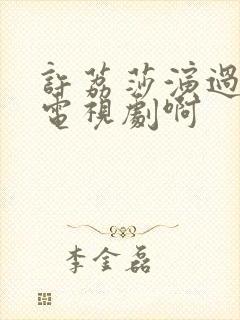 許荔莎演過
電視劇啊
李金磊